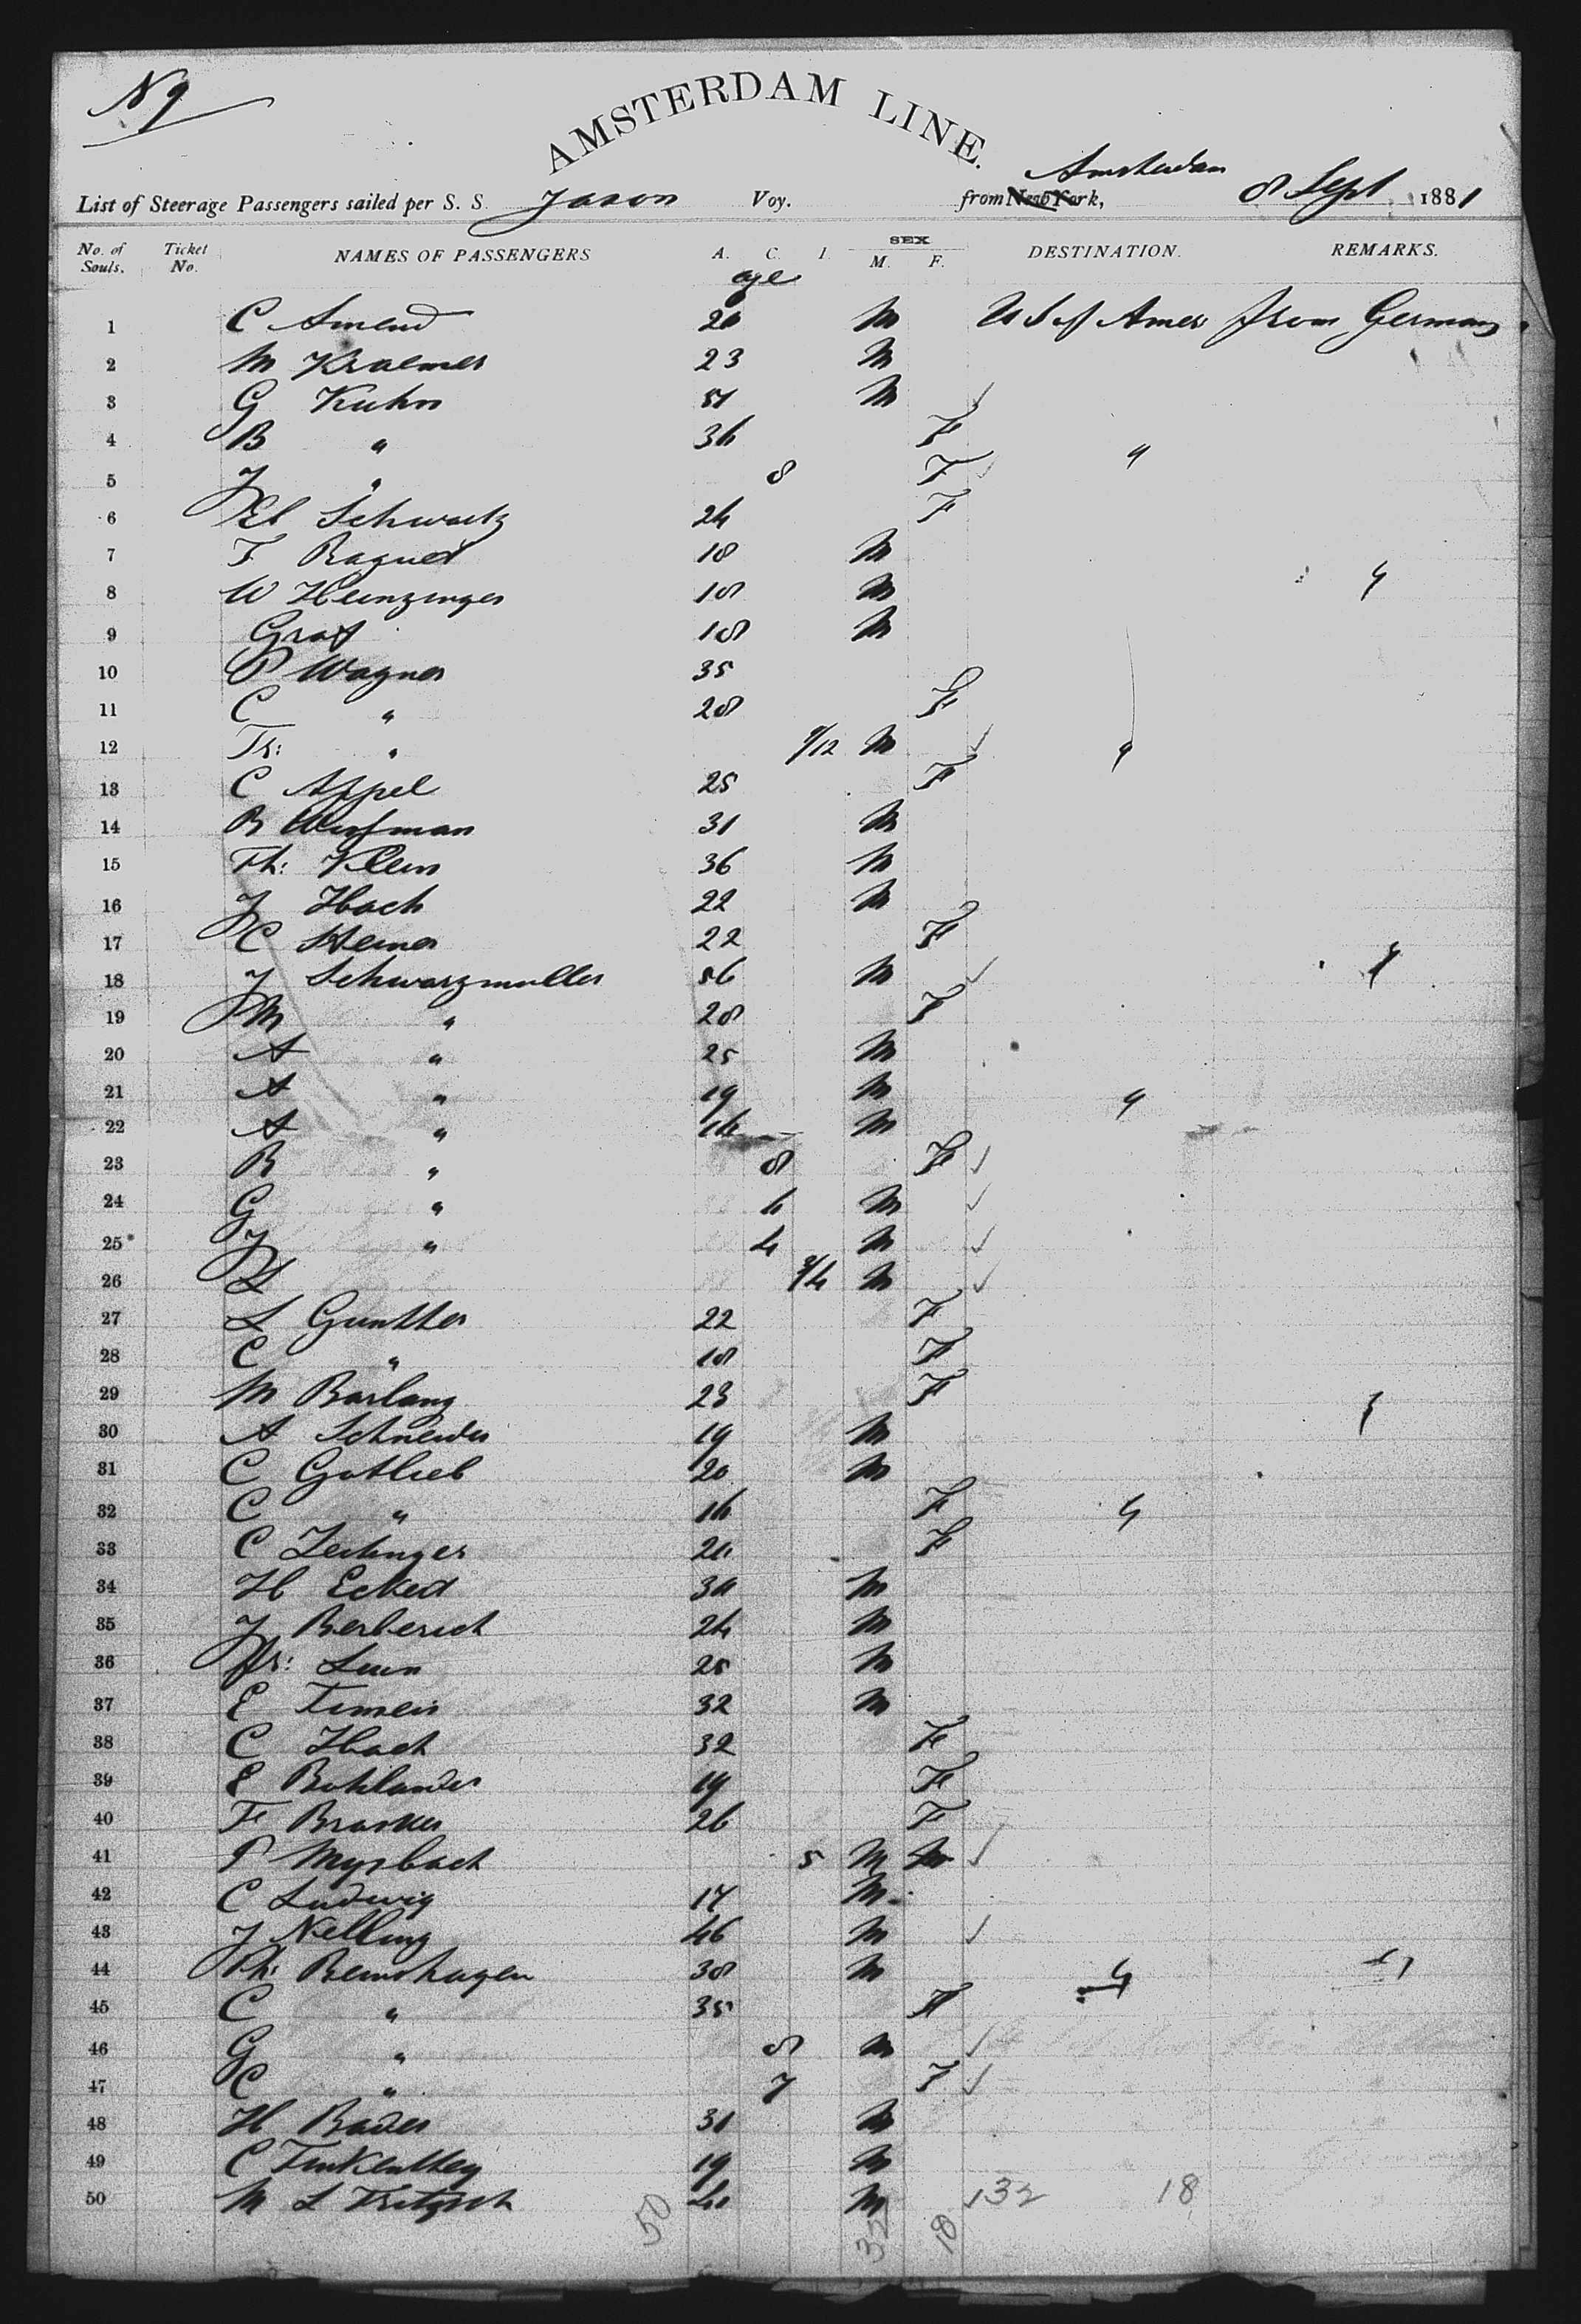 N 9
AMSTERDAM LINE.
List of Steerage Passengers sailed per S. S. Jason Voy. from New York, Amsterdam 8 Sept 1881
No. of Souls. Ticket No. NAMES OF PASSENGERS A. C. I. SEX M. F. DESTINATION. REMARKS.
age
1 C Amend 20 M U S of Amer from Germany
2 M Kraemer 23 M
3 G Kuhn 51 M ✓
4 B " 36 F "
5 J " 8 F ✓
6 El Schwartz 24 F
7 F Raquet 18 M
8 W Heinzinger 18 M "
9 Graf 18 M
10 P Wagner 35
11 C " 28 F
12 Th: " 9/12 M ✓ "
13 C Appel 25 F
14 B 31 M
15 Th: Klein 36 M
16 J Hach 22 M
17 C Steiner 22 F
18 J Schwarzmuller 56 M ✓ "
19 M " 28 F
20 A " 25 M
21 A " 19 M "
22 A " 16 M
23 B " 8 F ✓
24 G " 6 M ✓
25 J " 4 M ✓
26 L 3/4 M ✓
27 L Gunther 22 F
28 C " 18 F
29 M Barlang 23 F "
30 A Schneider 19 M
31 C Gotlieb 20 M
32 C " 16 F "
33 C Zeitinger 20 F
34 H Eckert 30 M
35 J Berberich 24 M
36 Fr: 25 M
37 E 32 M
38 C Hach 32 F
39 E Bohlander 19 F
40 F 26 F
41 P Myrbach 5 M ✓
42 C Ludwig 17 M
43 J Nelling 46 M ✓
44 Ph: Bemshagen 38 M " "
45 C " 35 F
46 G " 8 M ✓
47 C " 7 F ✓
48 H Bader 31 M
49 C 19 M
50 M L Fritzsch 40 M 132 18
50 32 18